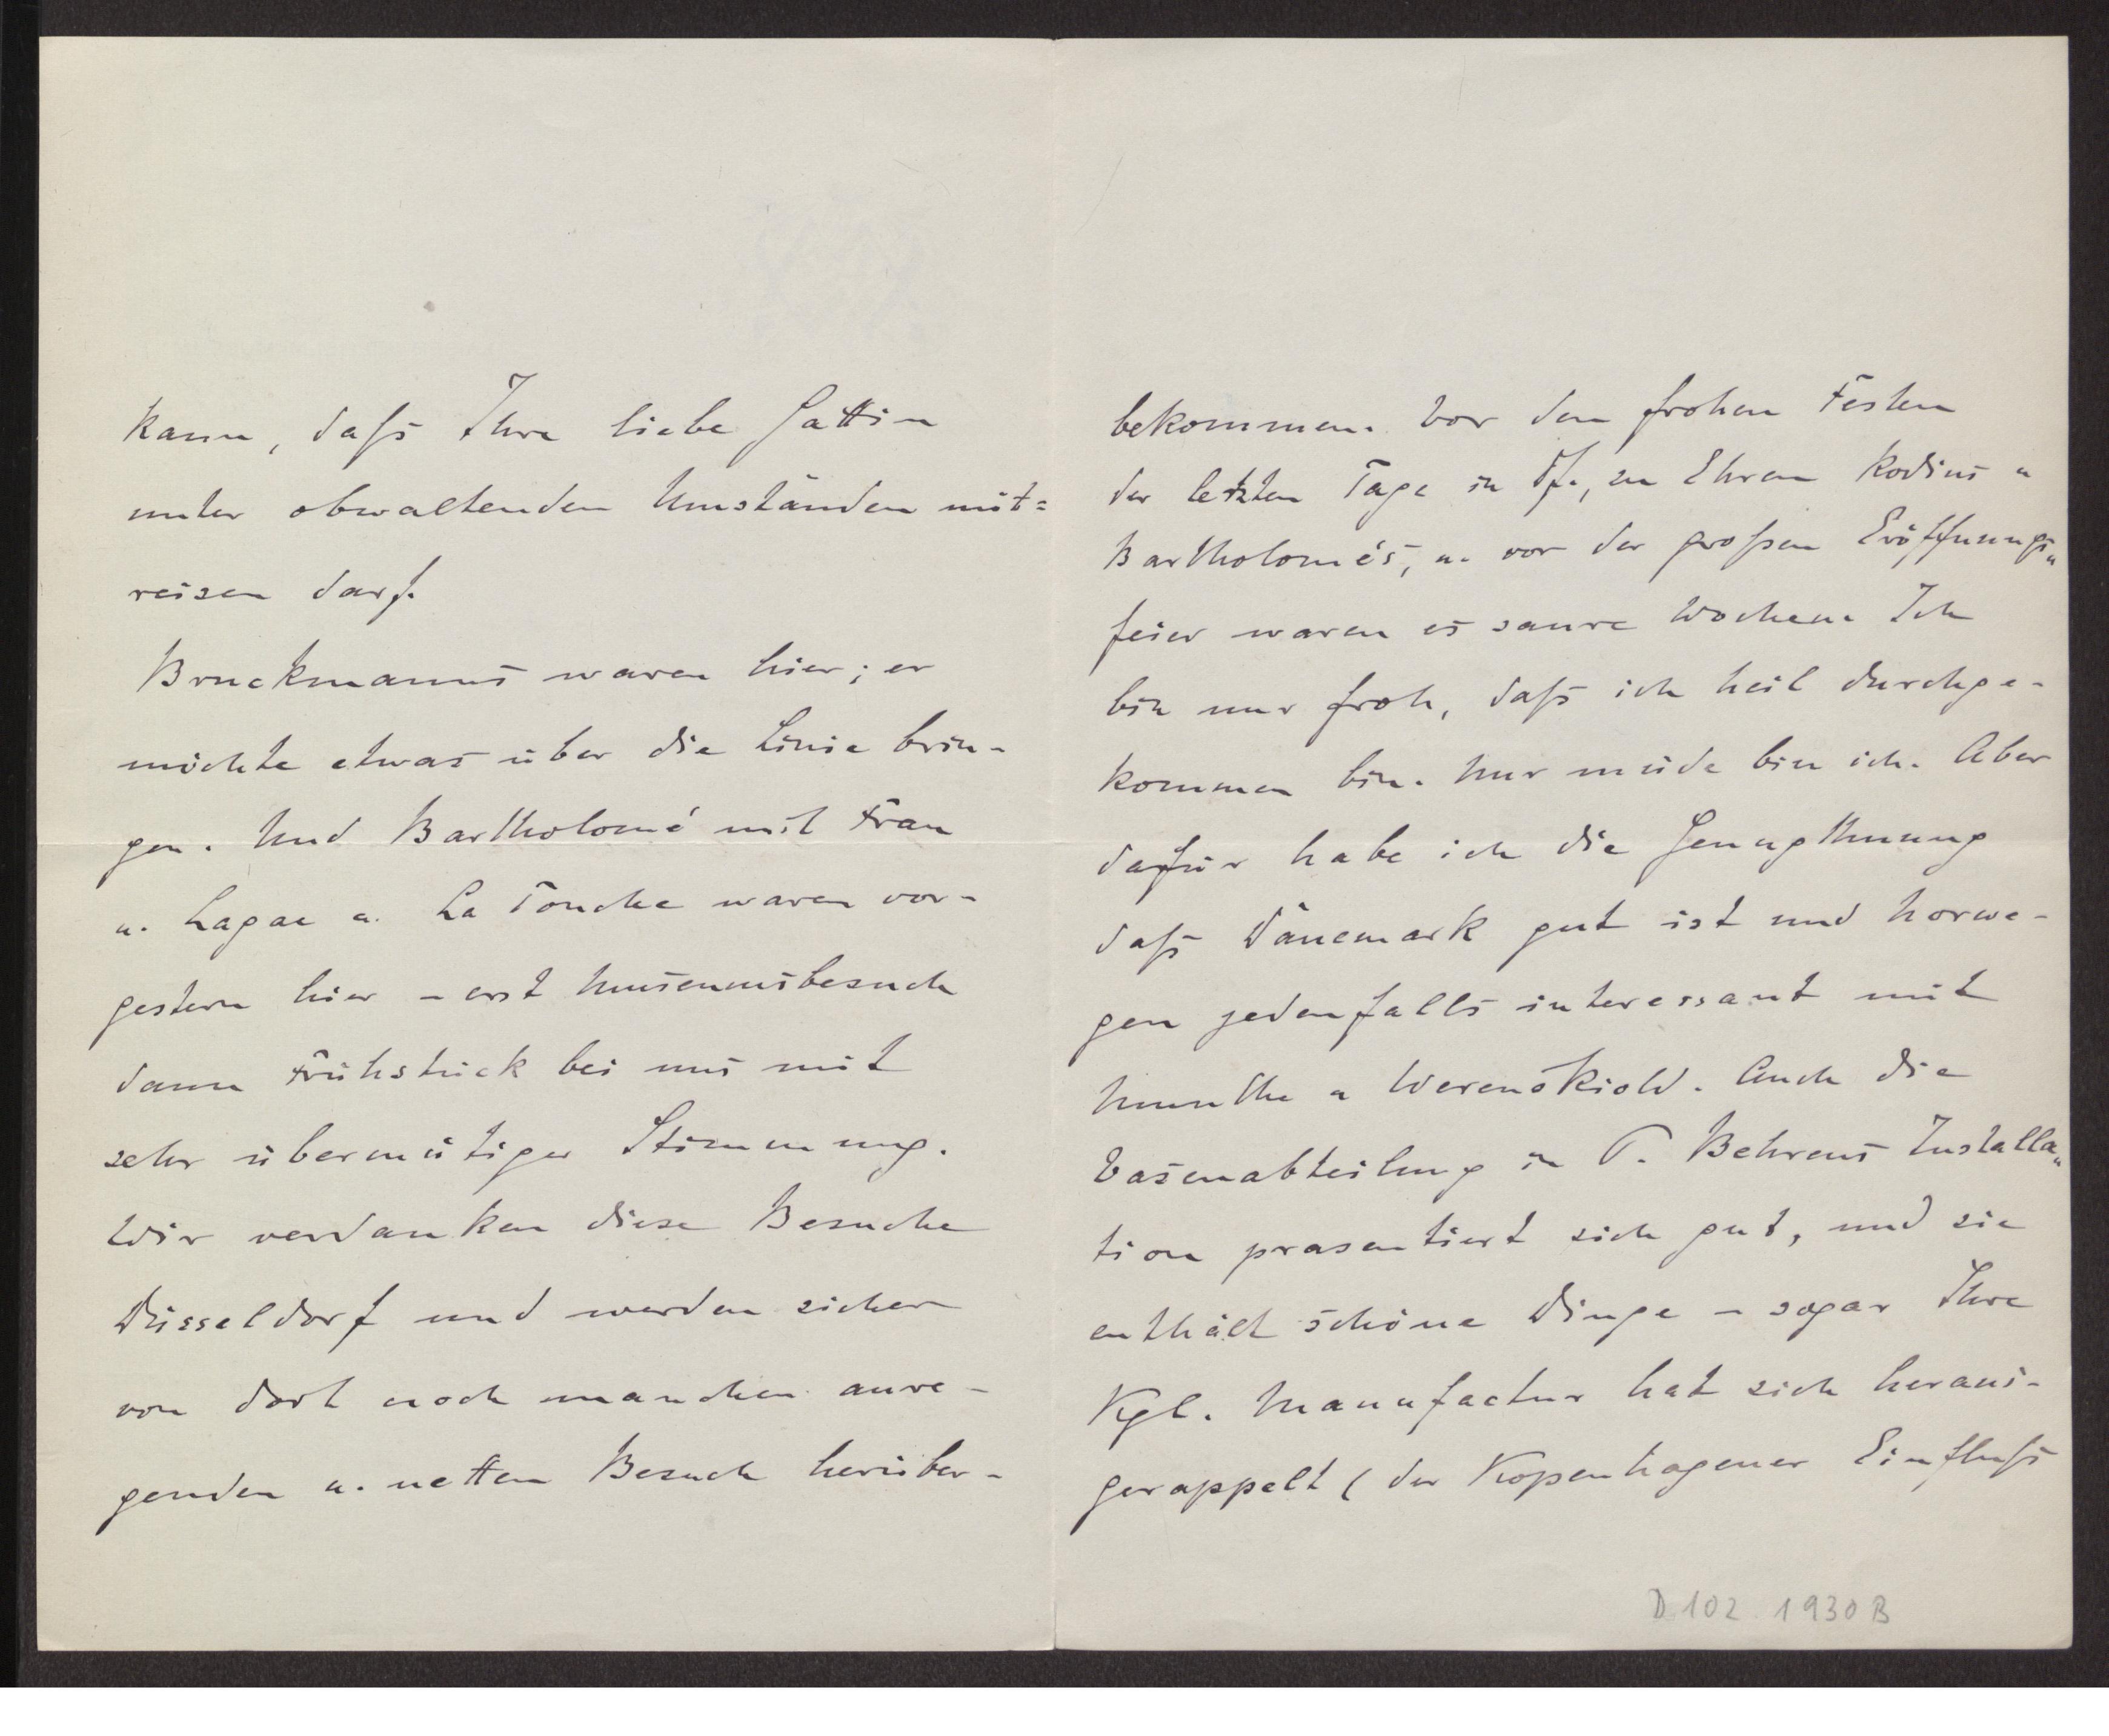 kann, daſs Ihre liebe Gattin
unter obwaltenden Umständen mit=
reisen darf.
Bruckmanns waren hier; er
möchte etwas über die Linie brin-
gen. Und Bartholomé mit Frau
u. Lagae u. La Touche waren vor-
gestern hier – erst Museumsbesuch
dann Frühstück bei uns mit
sehr übermütiger Stimmung.
Wir verdanken diese Besuche
Düsseldorf und werden sicher
von dort noch manchen anre-
genden u. netten Besuch herüber-
bekommen. Vor den frohen Festen
der letzten Tage in Df., zu Ehren Rodins u
Bartholomés, u. vor der großen Eröffnungs„
feier waren es saure Wochen. Ich
bin nur froh, daſs ich heil durchge-
kommen bin. Nur müde bin ich. Aber
dafür habe ich die Genugthuung
daſs Dänemark gut ist und Norwe-
gen jedenfalls interessant mit
Munthe u Werenskiold. Auch die
Vasenabteilung in P. Behrens Installa„
tion präsentiert sich gut, und sie
enthält schöne Dinge – sogar Ihre
Kgl. Manufactur hat sich heraus-
gerappelt (der Kopenhagener Einfluſs
D 102 1930 B